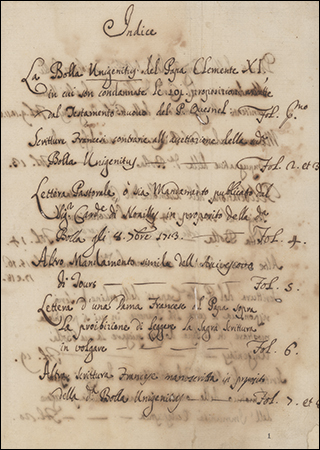 Indice
La Bolla Unigenitus del Papa Clemente XI.
in cui son condannate le 101. proposizioni
dal Testamento nuovo del P. Quesnel — Fol. Pmo
Scritture Francesi contrarie all'accettazione della da
Bolla Unigenitus — Fol. 2. et 3
Lettera Pastorale, o sia Mandamento publicato dal
Sigr. Carde. di Noailles in proposito della da
Bolla gli 8. 1713. — Fol. 4.
Altro Mandamento simile dell'Arcivescovo
di Tours — Fol. 5.
Lettera d'una Dama Francese al Papa sopra
la proibizione di leggere la Sagra Scrittura
in volgare — Fol. 6.
Altra scrittura Francese manoscritta in proposito
della da Bolla Unigenitus — Fol. 7. et
1